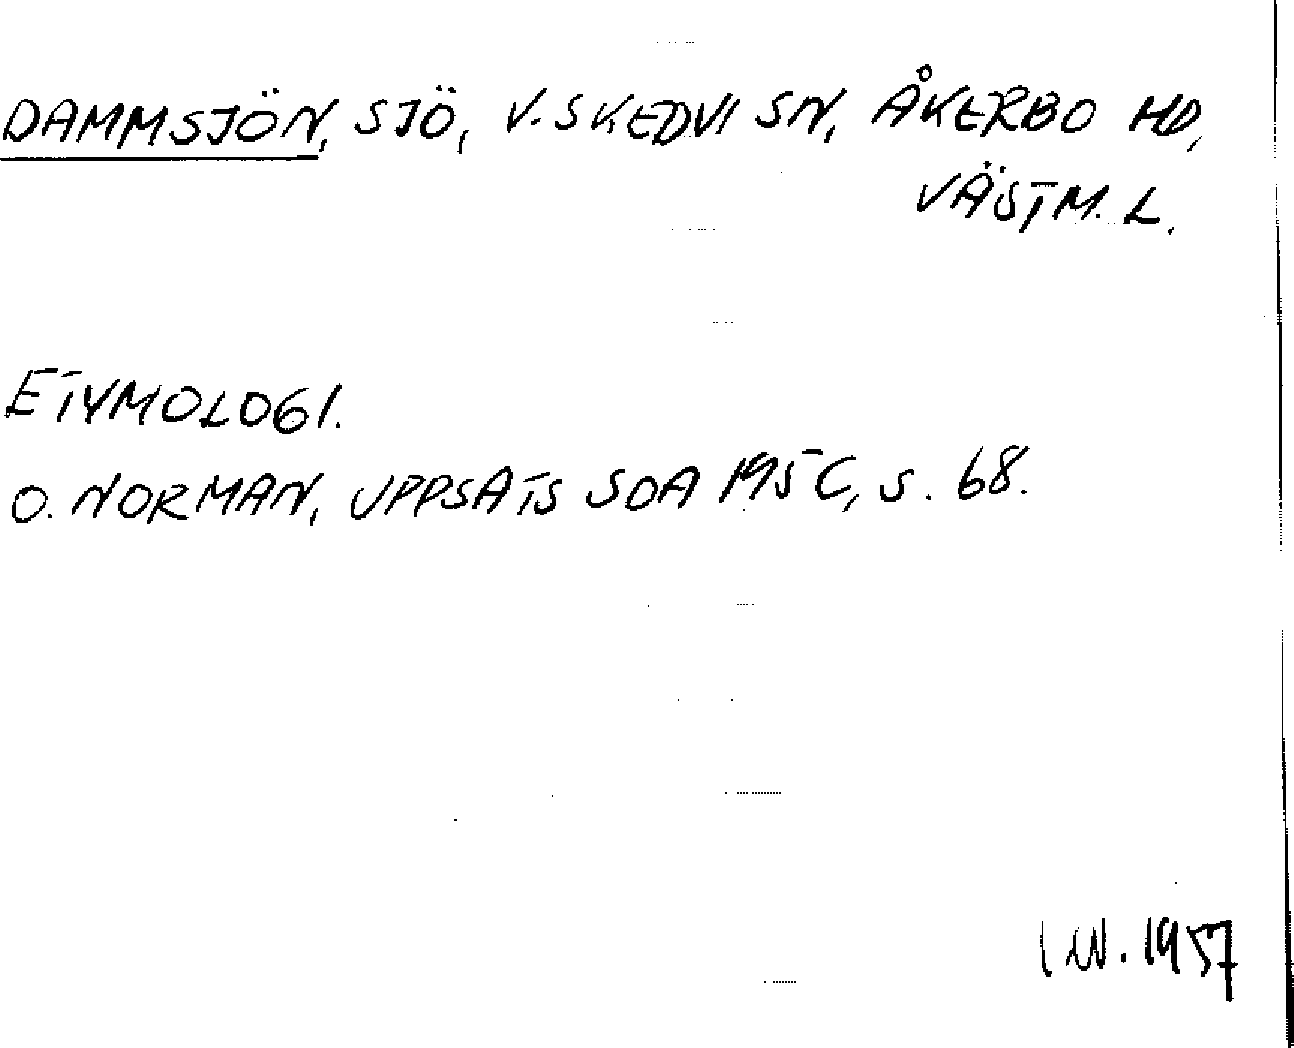 DAMMSJÖN, SJÖ, V. SKEDVI SN, ÅKERBO HD,
VÄSTM. L.
ETYMOLOGI.
O. NORMAN, UPPSATS SOA 1950, s. 68.
1957